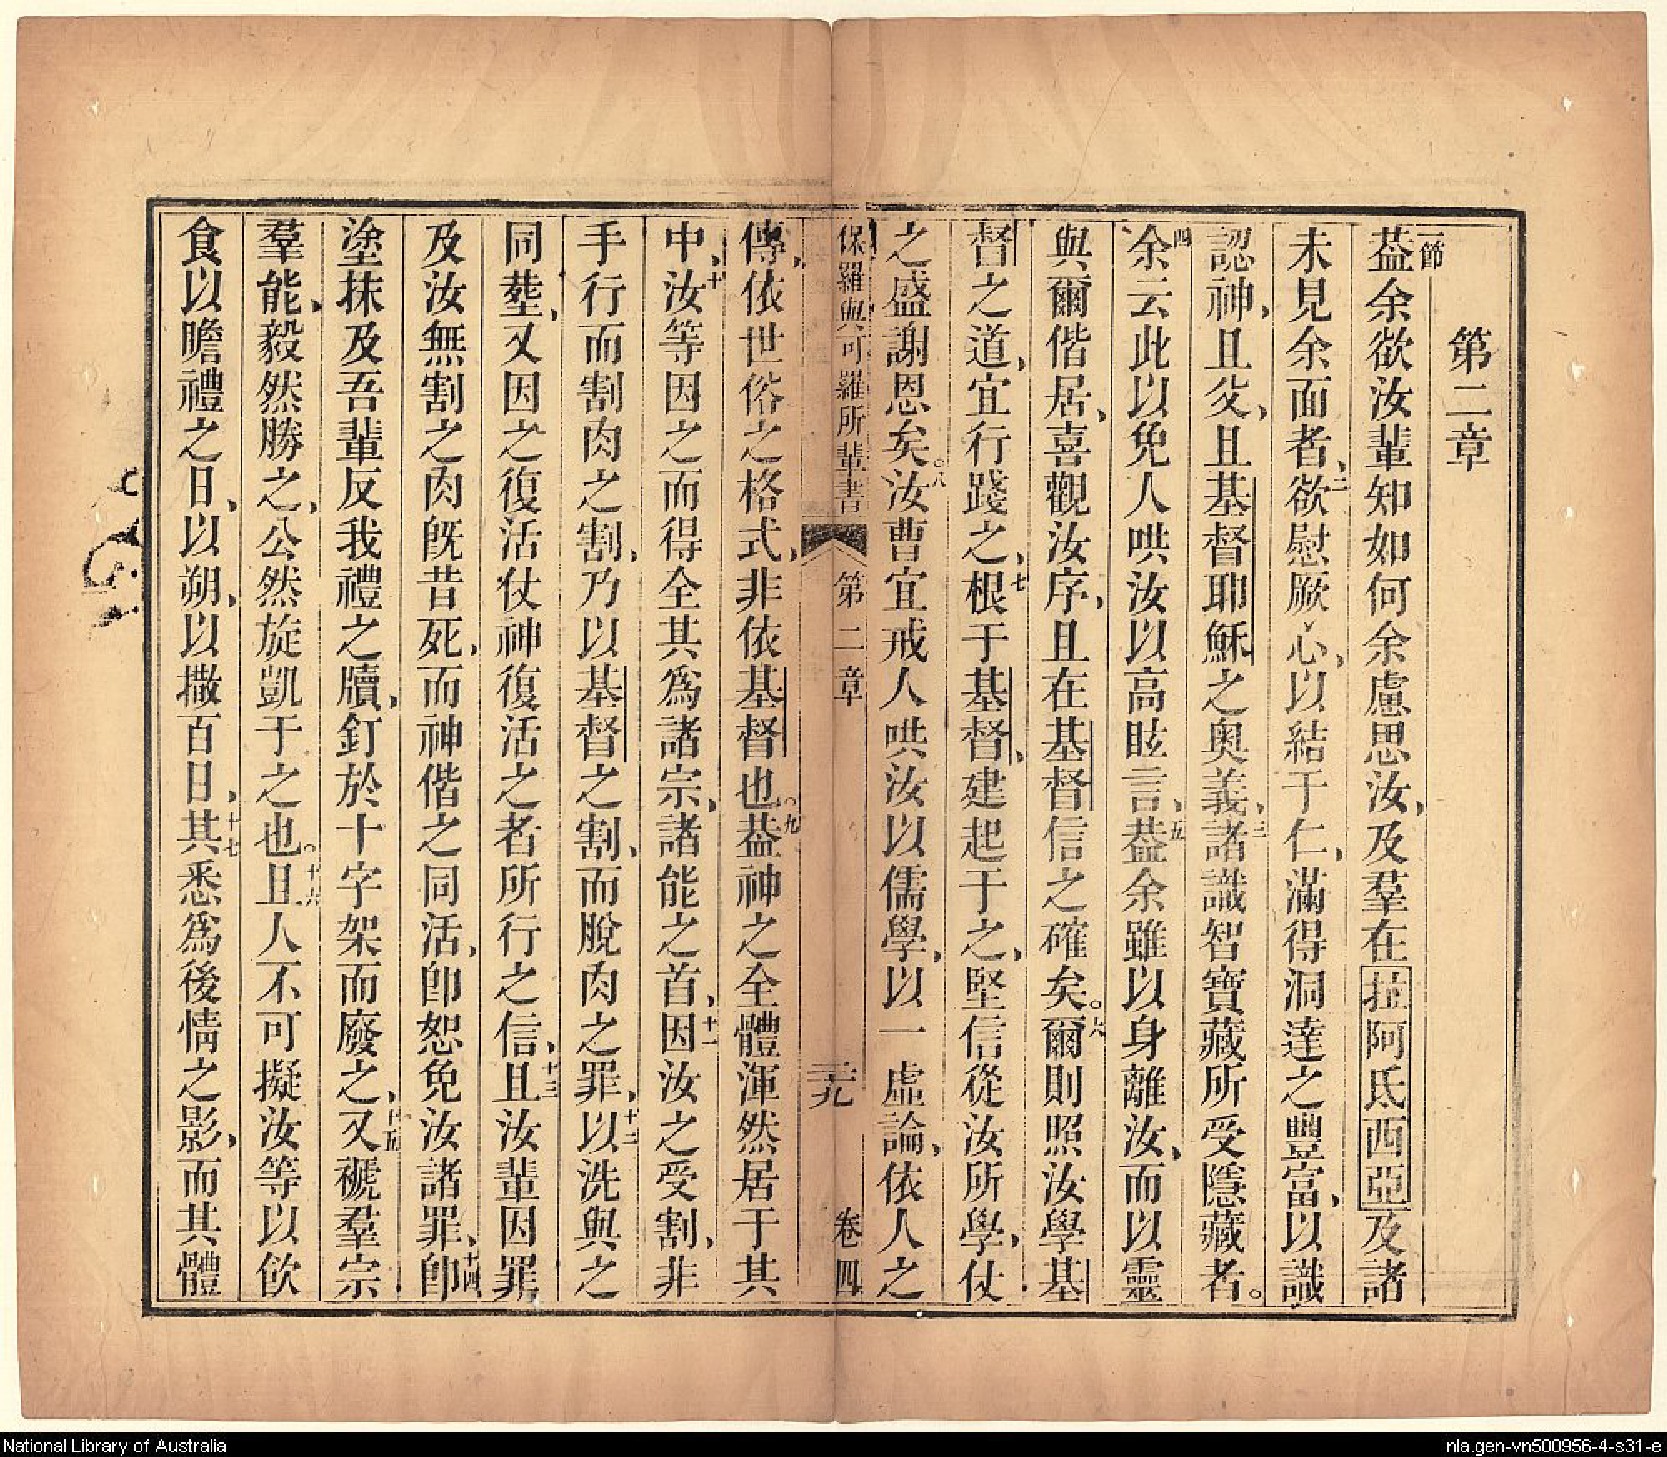 第二章
一節
葢余欲汝輩知如何余慮思汝、及羣在拉阿氐西亞及諸
未見余面者、二欲慰厥心、以結于仁、滿得洞達之豐富、以識
認神、且父、且基督耶穌之奧義、三諸識智寶藏所受隱藏者。
四余云此以免人哄汝以高眩言、五葢余雖以身離汝、而以靈
與爾偕居、喜觀汝序、且在基督信之確矣。六爾則照汝學基
督之道、宜行踐之、七根于基督、建起于之、堅信從汝所學、仗
之盛謝恩矣。八汝曹宜戒人哄汝以儒學、以一虛論、依人之
保羅與可羅所輩書 第二章 三十九 卷四
傳、依世俗之格式、非依基督也。九葢神之全體渾然居于其
中、十汝等因之而得全其爲諸宗、諸能之首、十一因汝之受割、非
手行而割肉之割、乃以基督之割、而脫肉之罪、十二以洗與之
同塟、又因之復活仗神復活之者所行之信、十三且汝輩因罪
及汝無割之肉旣昔死、而神偕之同活、卽恕免汝諸罪、十四卽
塗抹及吾輩反我禮之牘、釘於十字架而廢之、十五又褫羣宗
羣能、毅然勝之、公然旋凱于之也。十六且人不可擬汝等以飲
食以瞻禮之日、以朔、以撒百日、十七其悉爲後情之影、而其體
National Library of Australia
nla.gen-vn500956-4-s31-e